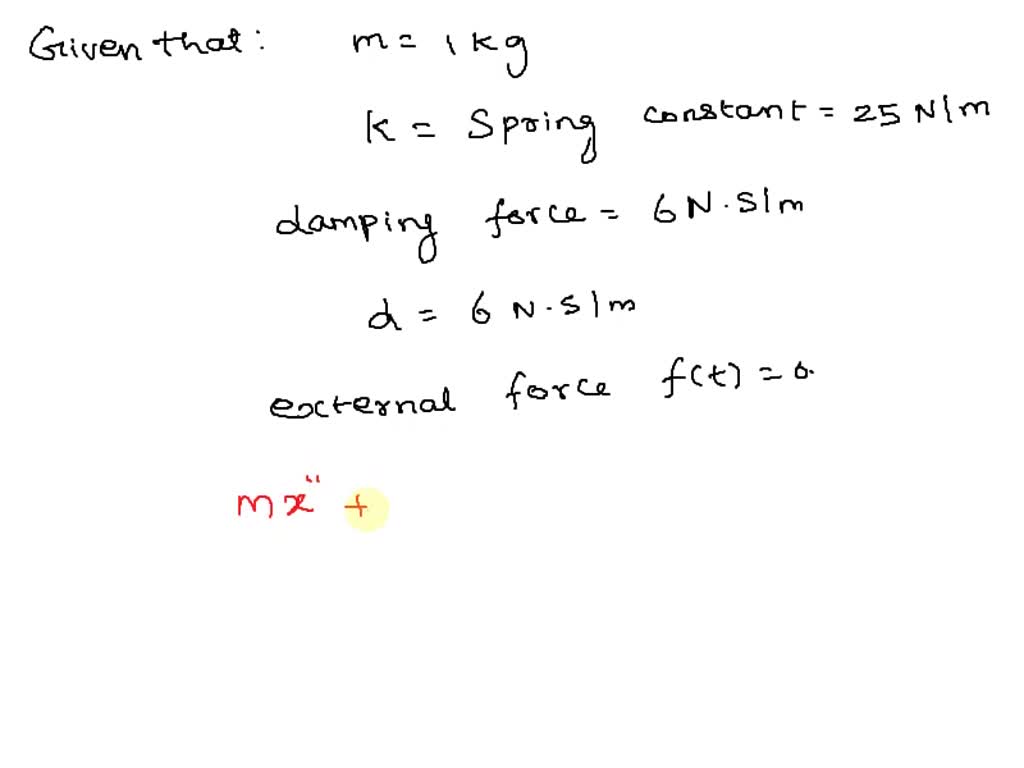 Given that: m = 1 kg
K = Spring constant = 25 N/m
damping force = 6 N.S/m
d = 6 N.S/m
external force f(t) = 0.
mx" +